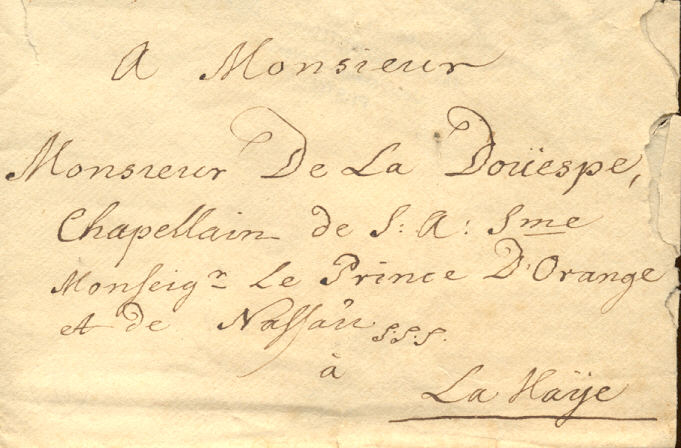 A Monsieur
Monsieur De La Doüespe,
Chapellain de S: A: Sme
Monseigr Le Prince D'Orange
et de Nassau S.S.S.
à
La Haÿe